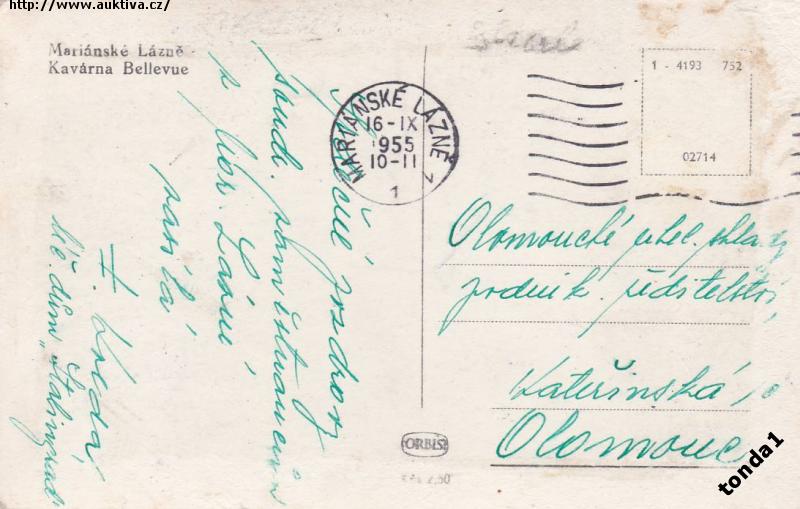 http://www.auktiva.cz/
Mariánské Lázně -
Kavárna Bellevue
MARIÁNSKÉ LÁZNĚ
16-IX
1955
10-11
1
1 - 4193 752
02714
Srdečné pozdravy
soudr. zaměstnancům
z Mar. Lázní
posílá
léč. dům "Stalingrad
Olomoucké uhel. sklady
podnik. ředitelství,
Kateřinská
Olomouc
ORBIS
Kčs 2,50
tonda1